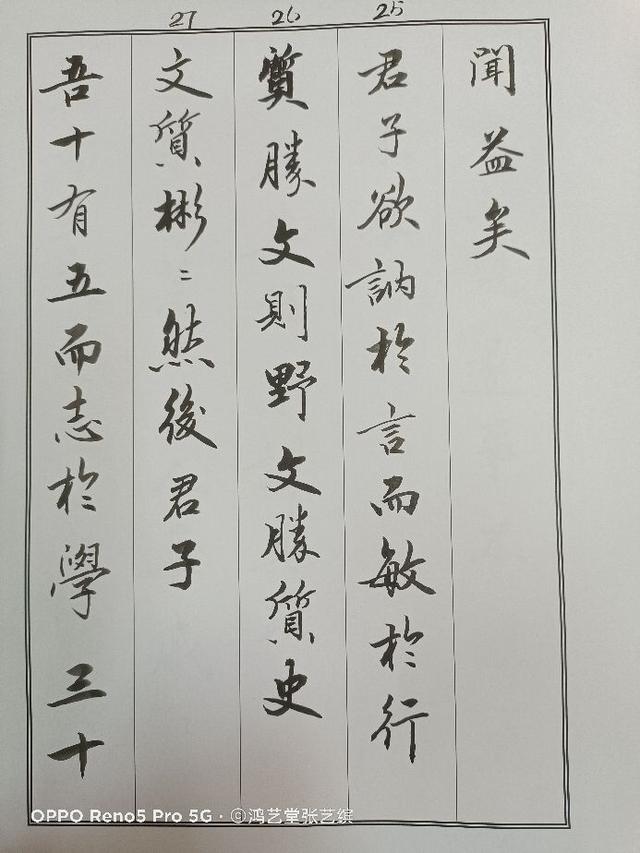 25
26
27
聞益矣
君子欲訥於言而敏於行
質勝文則野文勝質史
文質彬〻然後君子
吾十有五而志於學三十
OPPO Reno5 Pro 5G · ©鸿艺堂张艺缤